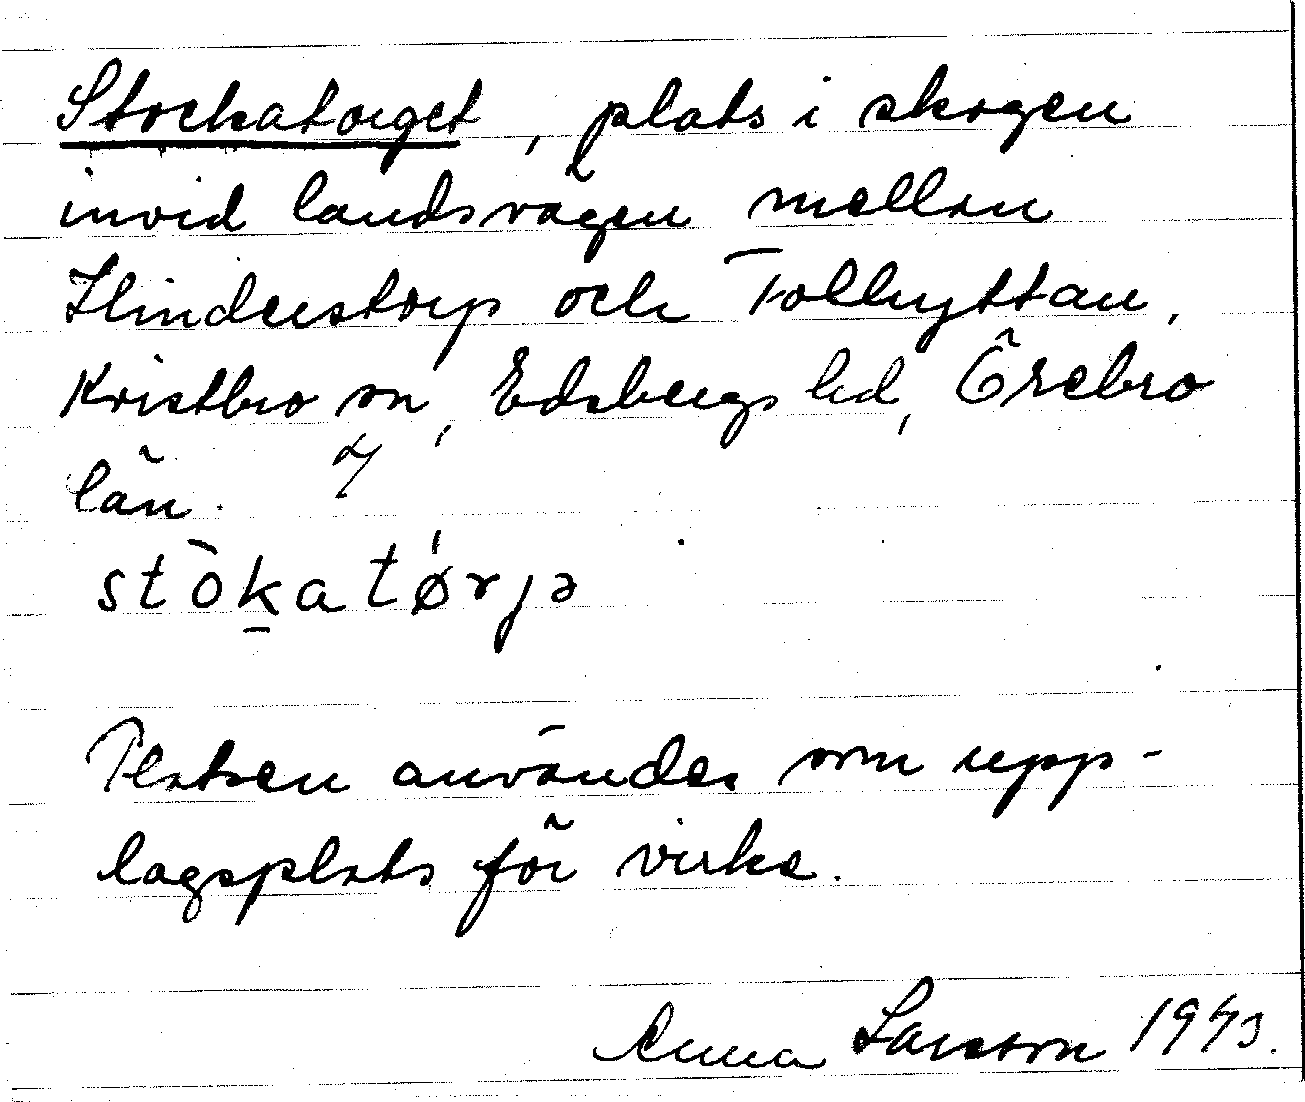 Stockatorget, plats i skogen
invid landsvägen mellan
Hinderstorp och Tolhyttan,
Kvistbro sn, Edsbergs hd, Örebro
län.
stòkatǿrjə
Platsen användes som upp-
lagsplats för virke.
Anna Larsson 1973.